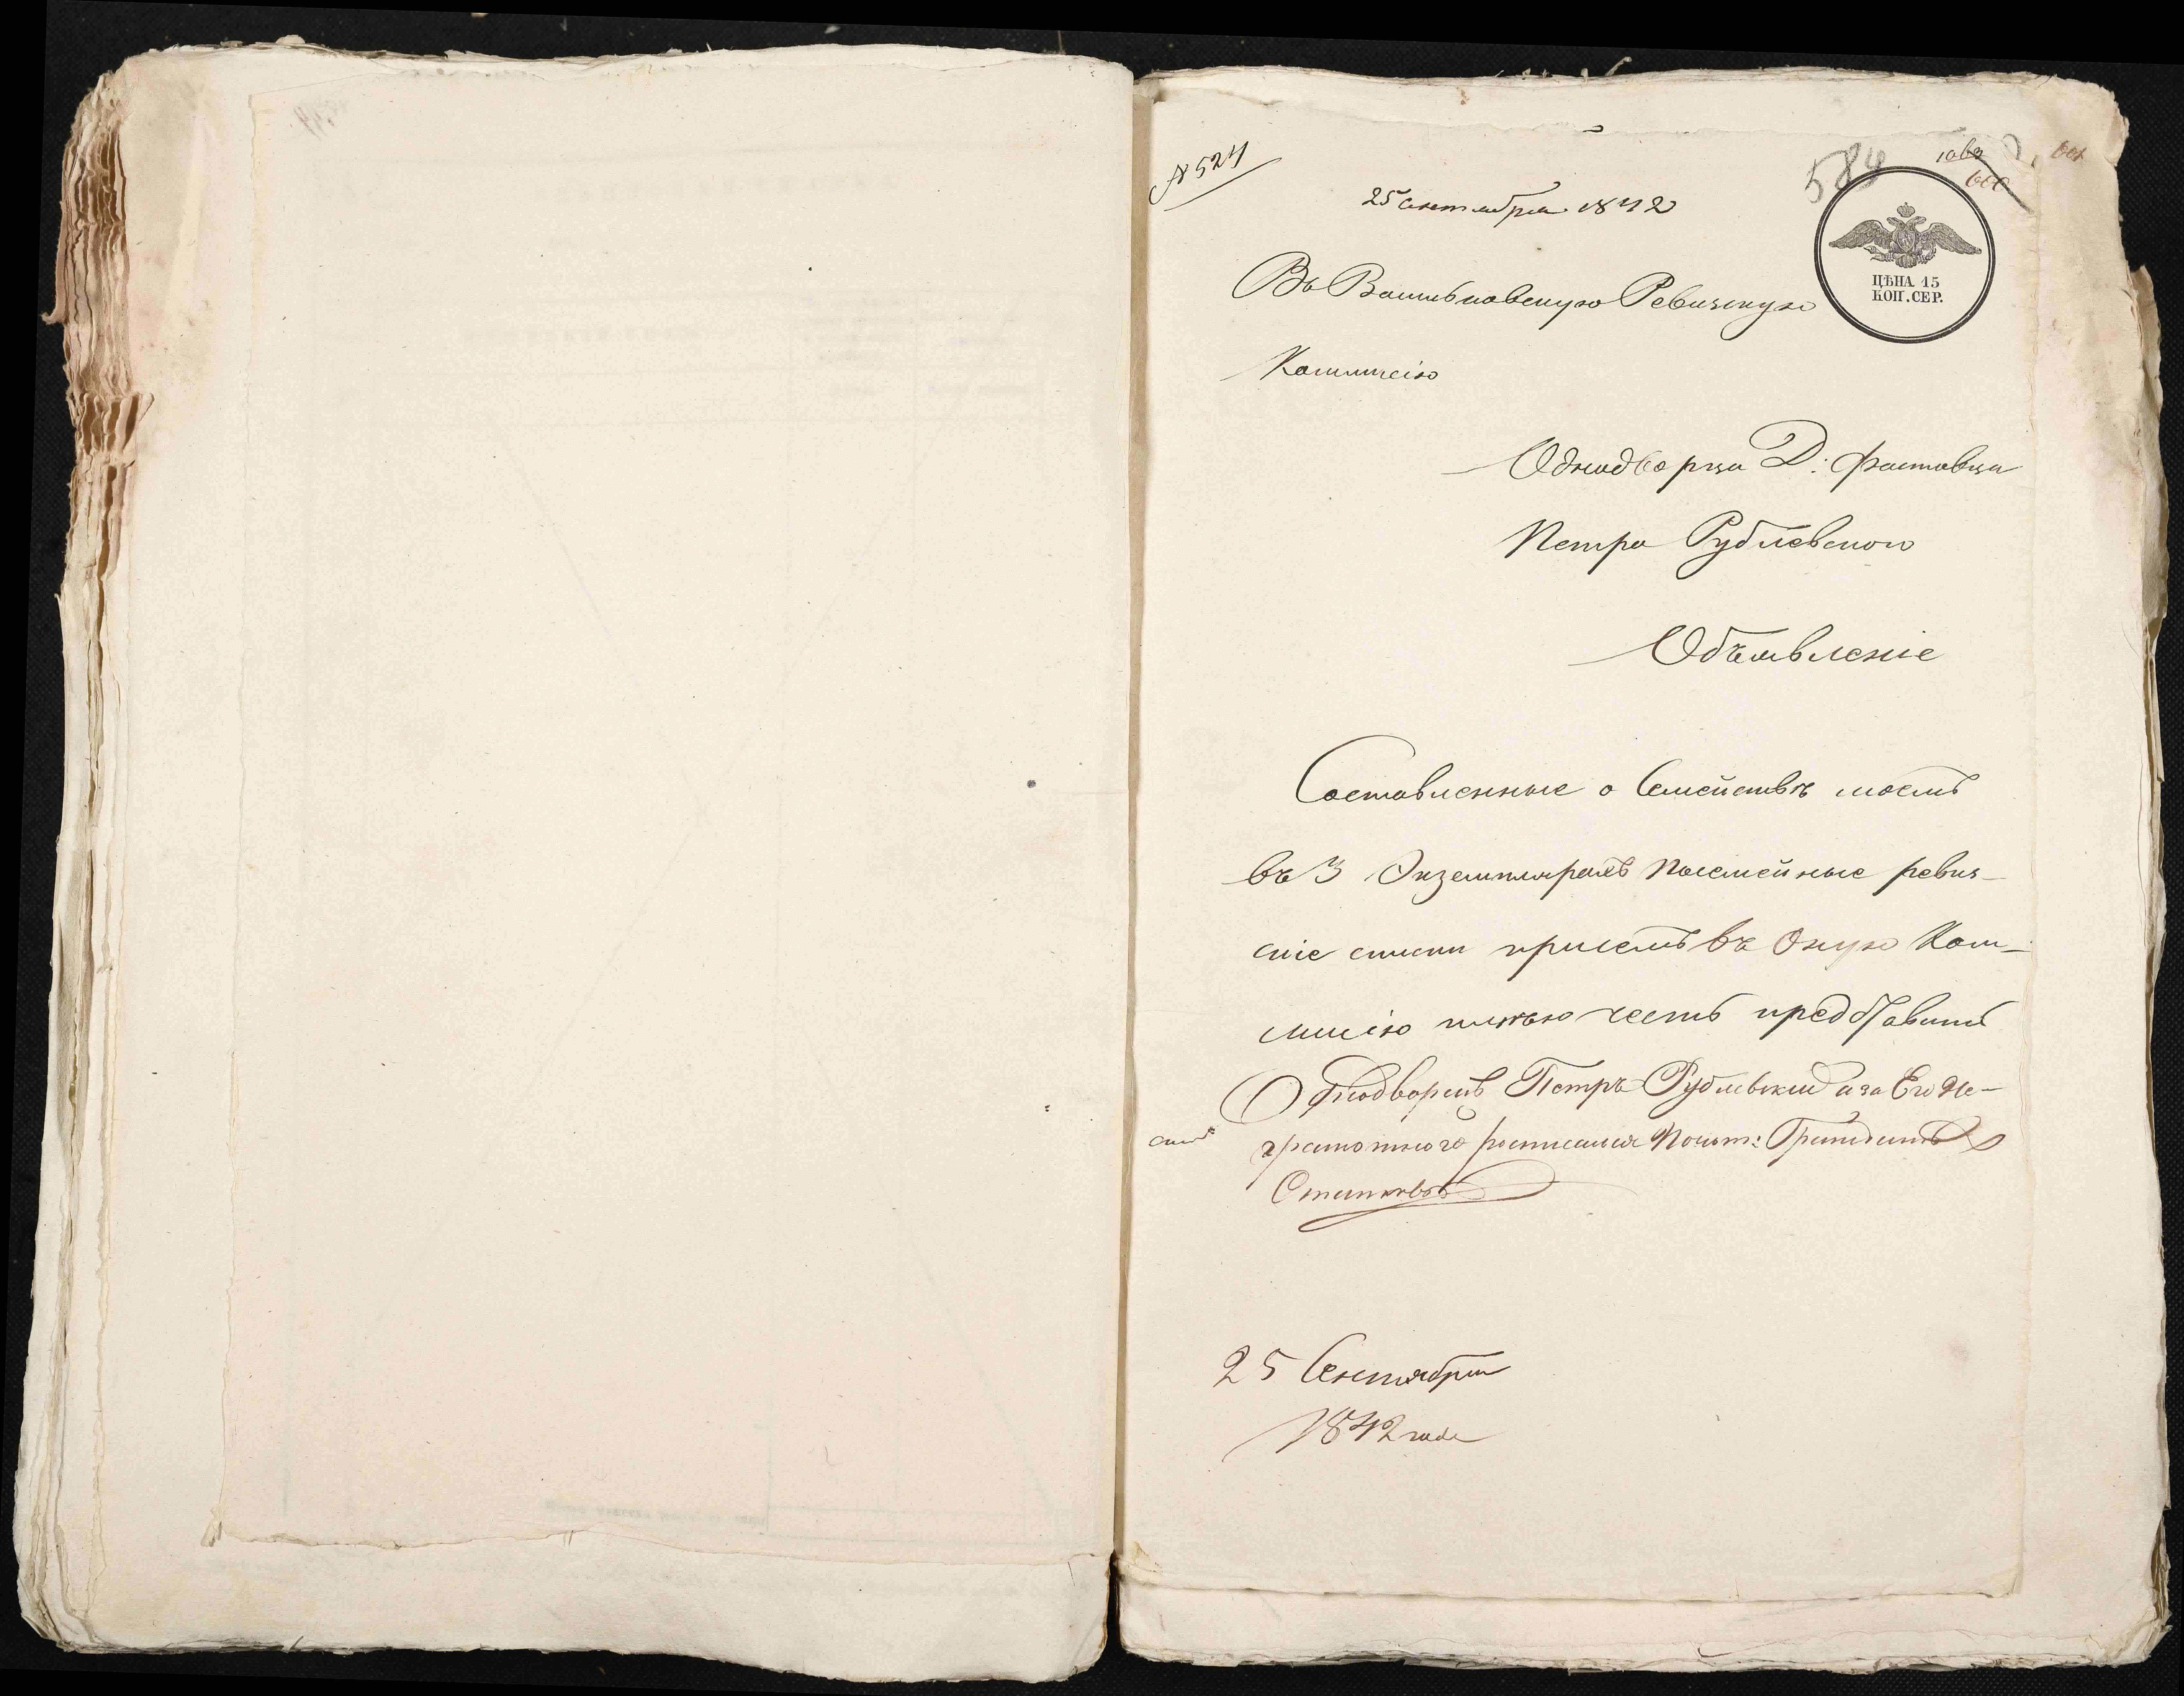 № 524
584
601
25 сентября 1842
ЦѢНА 15
КОП. СЕР.
Въ Васильковскую Ревизскую
Коммисію
Однодворца Д: Фастовца
Петра Рублевского
Объявленіе
Составленные о Семействѣ моемъ
въ 3 Экземплярахъ Посемейные ревиз-
скіе списки присемъ въ Оную Ком-
мисію имѣю честь представить
Однодворецъ Петръ Рублевский а за Его Не-
грамотного росписался
25 Сентября
1842 года